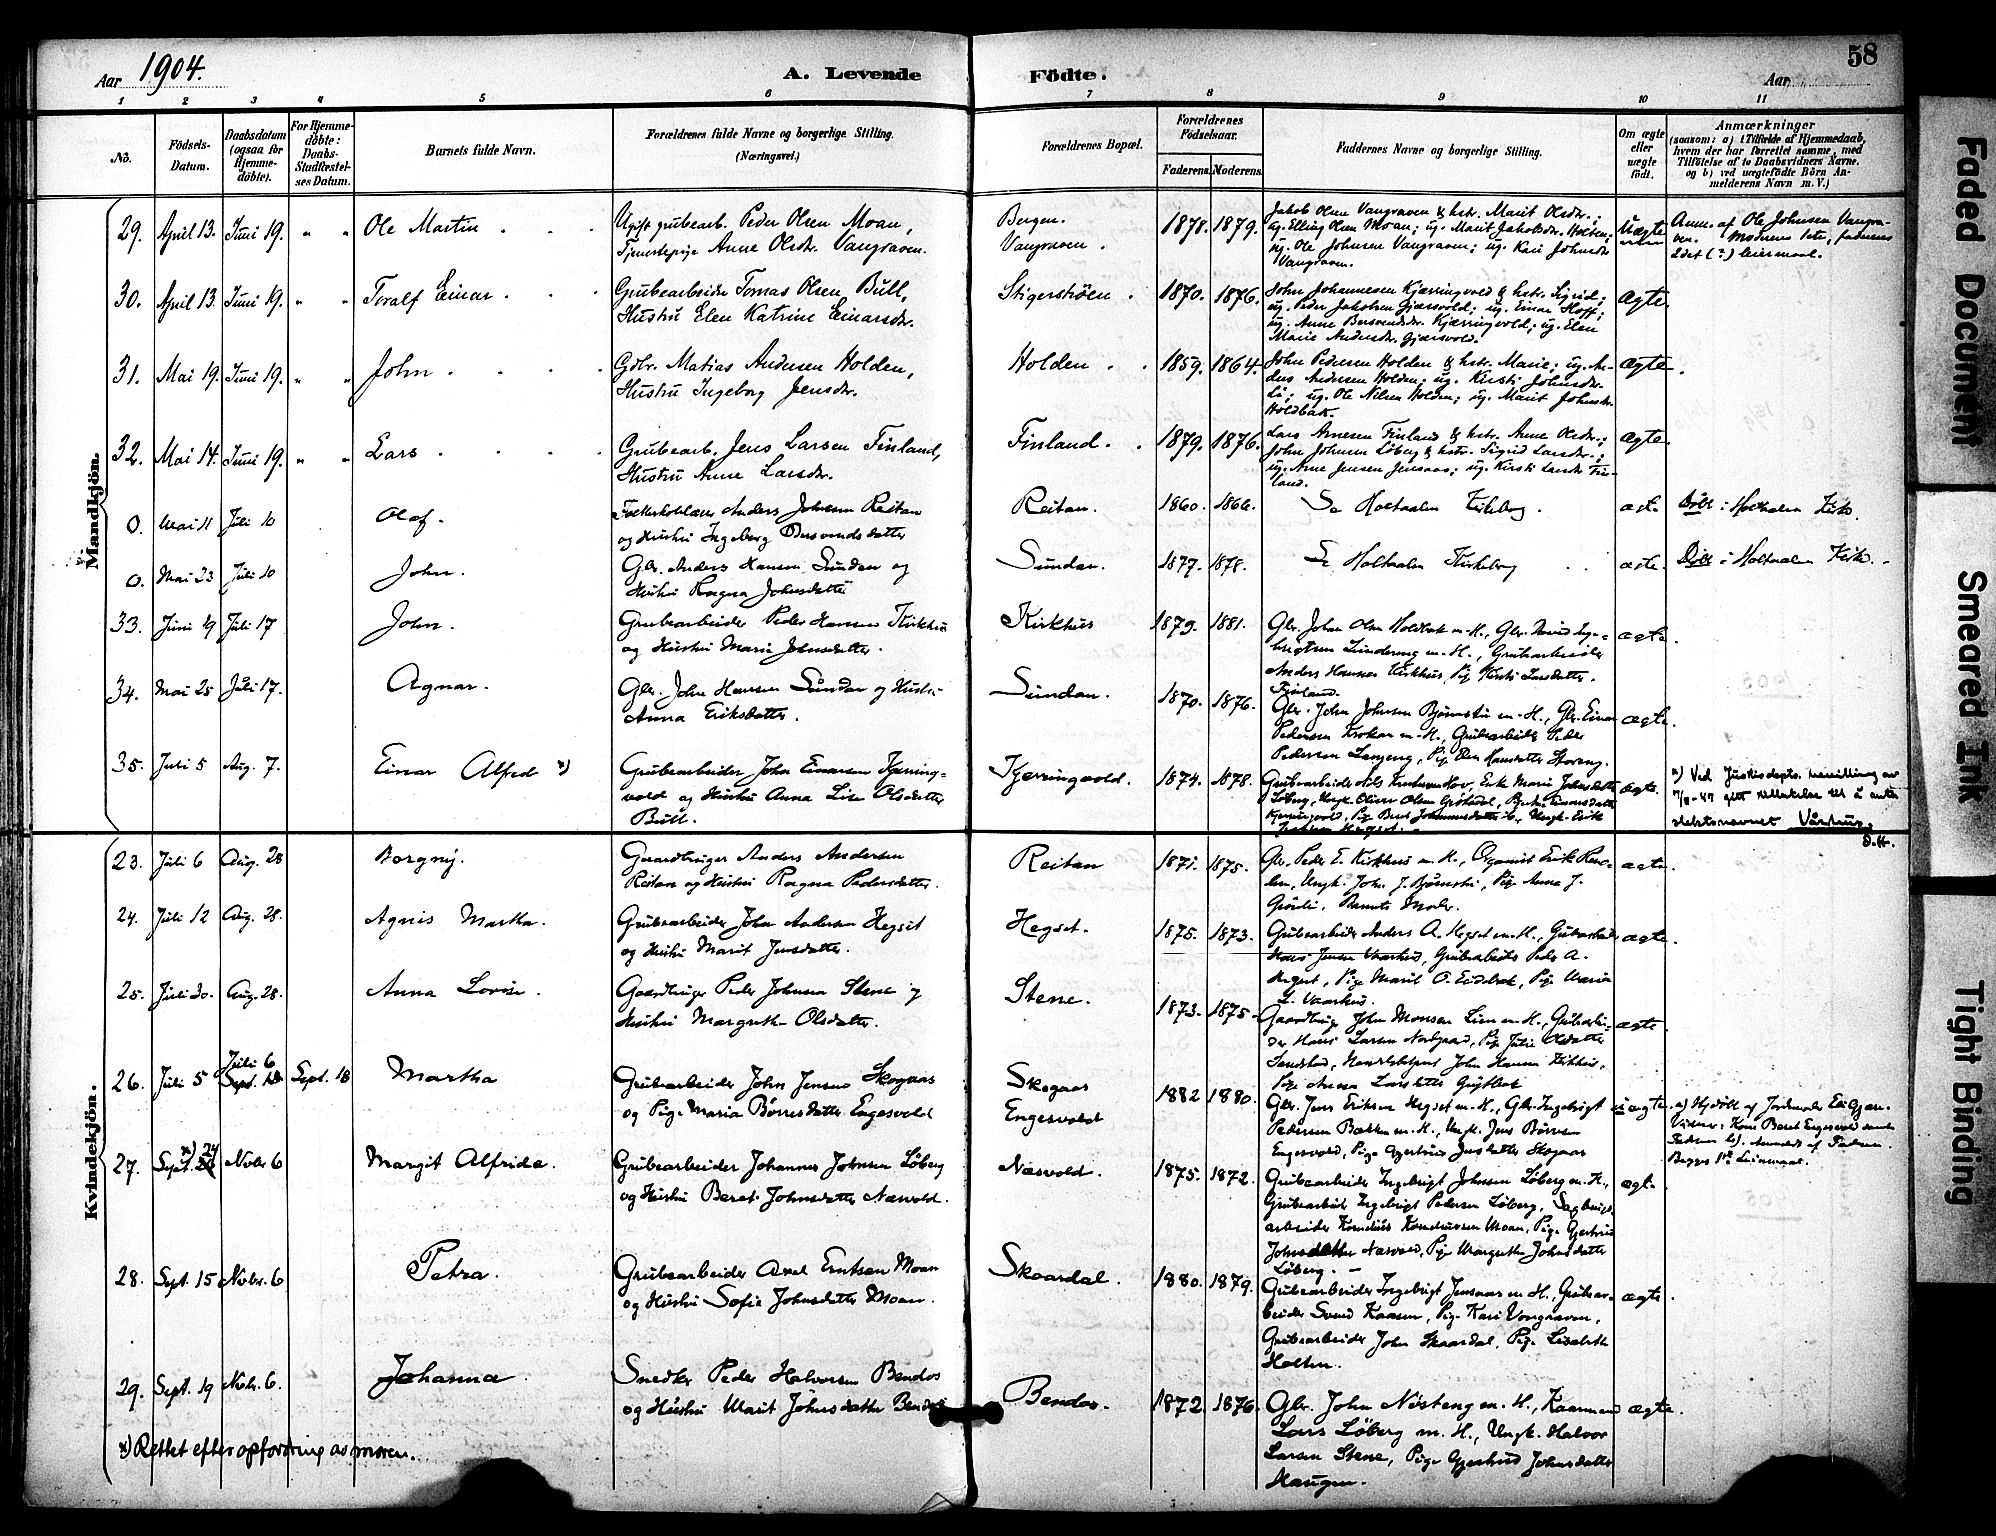 58
Aar 1904.
A. Levende Födte.
Aar
1 2 3 4 5 6 7 8 9 10 11
No.
Födsels-Datum.
Daabsdatum (ogsaa for Hjemmedöbte).
For Hjemmedöbte: Daabs-Stadfæstelses Datum.
Barnets fulde Navn.
Forældrenes fulde Navne og borgerlige Stilling.
(Næringsvei.)
Forældrenes Bopæl.
Forældrenes Födselsaar.
Faderens. Moderens.
Faddernes Navne og borgerlige Stilling.
Om ægte eller uægte født.
Anmærkninger
(saasom: a) i Tilfælde af Hjemmedaab,
hvem der har forrettet samme, med
Tilföielse af to Daabsvidners Navne,
og b) ved uægtefödte Börn An-
melderens Navn m. V.)
Mandkjön.
29. April 13. Juni 19. " " Ole Martin
Ugift grubearb. Peder Olsen Moan,
Tjenestepige Anne Olsdr. Vangraven.
Bergen.
Vangraven.
1878. 1879.
Jakob Olsen Vangraven & hstr. Marit Olsdr.;
ug. Elling Olsen Moan; ug. Marit Jakobsdr. Holten;
ug. Ole Johnsen Vangraven; ug. Kari Johnsdr.
Vangraven.
Uægte
Anm. af Ole Johnsen Vangra-
ven. Moderens 1ste, faderens
2det (?) leiermaal.
30. April 13. Juni 19. " " Toralf Einar
Grubearbeider Tomas Olsen Bull,
Hustru Elen Katrine Einarsdr.
Stigersthöen.
1870. 1876.
John Johannesen Kjærringvold & hstr. Sigrid;
ug. Peder Jakobsen Gjærsvold; ug. Einar Hoff;
ug. Anne Bersvendsdr. Kjærringvold; ug. Elen
Marie Andersdr. Gjærsvold.
Ægte.
31. Mai 19. Juni 19. " " John
Gdbr. Matias Andersen Holden,
Hustru Ingeborg Jensdr.
Holden
1859. 1864.
John Pedersen Holden & hstr. Marie; ug. An-
ders Andersen Holden; ug. Kirsti Johnsdr.
Li; ug. Ole Nilsen Holden; ug. Marit Johnsdr.
Holdbak.
Ægte.
32. Mai 14. Juni 19. " " Lars
Grubearb. Jens Larsen Finland,
Hustru Anne Larsdr.
Finland.
1879. 1876.
Lars Arnesen Finland & hstr. Anne Olsdr.;
John Johnsen Løberg & hstr. Sigrid Larsdr.;
ug. Arne Jensen Jensaas; ug. Kirsti Larsdr. Fin-
land.
Ægte.
0. Mai 11 Juli 10 Olaf.
Anders Johnsen Reitan
og Hustru Ingeborg Bersvendsdatter
Reitan.
1860. 1866.
Se Holtaalen Kirkebog.
ægte
Döbt i Holtaalen Kirke.
0. Mai 23 Juli 10 John.
Gbr. Anders Hansen Sundan og
Hustru Ragna Johnsdatter
Sundan.
1877. 1878.
Se Holtaalen Kirkebog
ægte.
Döbt i Holtaalen Kirke.
33. Juni 19 Juli 17 John.
Grubearbeider Peder Hansen Kirkhus
og Hustru Marie Johnsdatter.
Kirkhus
1879. 1881.
Gbr. John Olsen Holdbak m. H., Gbr. Inge-
brigtsen m. H., Grubearbeider
Anders Hansen Kirkhus, Pige Kirsti Larsdatter
Finland.
ægte.
34. Mai 25 Juli 17. Agnar.
Gbr. John Hansen Sundan og Hustru
Anna Eriksdatter.
Sundan.
1870. 1876.
Gbr. John Johnsen Bjørnstu m. H., Gbr. Einar
Pedersen m. H., Grubearbeider Peder
Pedersen Langeng, Pige Elen Hansdatter Storeng.
ægte.
35. Juli 5 Aug. 7. Einar Alfred x)
Grubearbeider John Einarsen Kjerring-
vold og Hustru Anna Lise Olsdatter
Bull.
Kjærringvold.
1874. 1878.
Grubearbeider Nils Knudsen Hov, Enke Marie Johnsdatter
Løberg, Ungk. Oliver Olsen
ægte.
x) Ved Justisdepts. bevilling av
gitt tillatelse til å anta
slektsnavnet Vårhus.
D.H.
Kvindekjön.
23. Juli 6 Aug. 28 Borgny.
Gaardbruger Anders Andersen
Reitan og Hustru Ragna Pedersdatter.
Reitan
1871. 1875.
Gbr. Peder E. Kirkhus m. H., Organist Erik
Ungk. John J. Bjørnstu, Pige Anna J.
Barnets Moder.
ægte.
24. Juli 12 Aug. 28. Agnis Martha.
Grubearbeider John Andersen Hegset
og Hustru Marit Jensdatter.
Hegset.
1875. 1873.
Grubearbeider Anders A. Hegset m. H., Grubearbeider
Hans Jensen Vaarhus, Grubearbeider Peder A.
Hegset, Pige Marit O. Pige Maria
L. Vaarhus.
ægte.
25. Juli 30. Aug. 28. Anna Lovise.
Gaardbruger Peder Johnsen Stene og
Hustru Margreth Olsdatter.
Stene.
1873. 1875.
Gaardbruger John Monsen Lien m. H., Grubearbei-
der Hans Larsen Pige Julie Olsdatter
John Hansen Kirkhus,
Pige Anna Larsdatter
ægte.
26. Juli 5 Juli 6 Sept. 18 Sept. 18 Martha
Grubearbeider John Jensen Skogaas
og Pige Maria Børresdatter Engesvold
Skogaas
Engesvold
1882 1880.
Gbr. Jens Eriksen Hegset m. H., Gbr. Ingebrigt
Pedersen Bakken m. H., Ungk. Jens Børresen
Engesvold, Pige Gjertrud Jensdatter Skogaas
uægte.
a) Hjdöbt af Jordmoder
Vidner: Kone Beret Engesvold samt
Faderen b). Anmeldt af Faderen
Begges 1ste Leiermaal.
27. Sept. x) 24 Novbr 6 Margit Alfrida.
Grubearbeider Johannes Johnsen Løberg
og Hustru Beret Johnsdatter Næsvold.
Næsvold.
1875. 1872.
Grubearbeider Ingebrigt Johnsen Løberg m. H.,
Grubearbeider Ingebrigt Pedersen Løberg, Sagbrugs-
arbeider Kornelius Korneliussen Moan, Pige Gjertrud
Johnsdatter Næsvold, Pige Margrethe Johnsdatter
Løberg.
ægte.
28. Sept. 15 Novbr. 6 Petra.
Grubearbeider Axel Erntsen Moan
og Hustru Sofie Johnsdatter Moan.
Skaardal.
1880. 1879.
Grubearbeider Ingebrigt Jensaas m. H., Grubear-
beider Svend Kaasen, Pige Kari Vongraven,
Grubearbeider John Skaardal, Pige Lisabeth
Holten.
ægte.
29. Sept. 19 Novbr. 6. Johanna
Snedker Peder Halvorsen Bendos
og Hustru Marit Johnsdatter Bendos
Bendos.
1872 1876.
Gbr. John Nösteng m. H., Kaarmand
Lars Løberg m. H., Ungk. Halvor
Larsen Stene, Pige Gjertrud Johnsdatter
Haugen.
ægte.
x) Rettet efter opfordring av moren.
Faded Document
Smeared Ink
Tight Binding